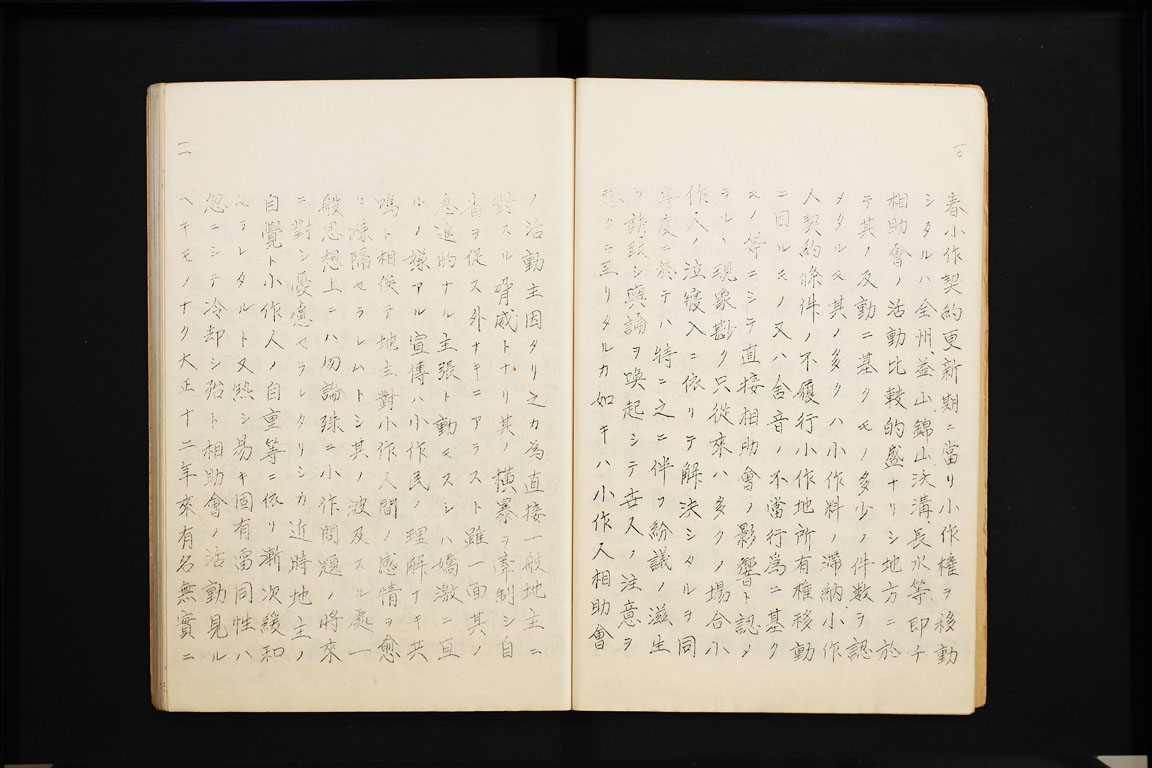 一〇
春小作契約更新期ニ當リ小作權ヲ移動
シタルハ全州、益山、錦山、沃溝、長水等即チ
相助會ノ活動比較的盛ナリシ地方ニ於
テ其ノ反動ニ基クモノ多少ノ件数ヲ認
メタルモ其ノ多クハ小作料ノ滞納、小作
人契約條件ノ不履行小作地所有權移動
ニ因ルモノ又ハ舎音ノ不當行為ニ基ク
モノ等ニシテ直接相助會ノ影響ト認メ
ラルヽ現象尠ク只從來ハ多クノ場合小
作人ノ泣寝入ニ依リテ解決シタルヲ同
年度ニ於テハ特ニ之ニ伴フ紛議ノ滋生
ヲ誘致シ輿論ヲ喚起シテ世人ノ注意ヲ
惹クニ至リタルカ如キハ小作人相助會
一一
ノ活動主因タリ之カ為直接一般地主ニ
對スル脅威トナリ其ノ横暴ヲ牽制シ自
省ヲ促ス外ナキニアラスト雖一面其ノ
急進的ナル主張ト動モスレハ矯激ニ亘
ルノ嫌アル宣傳ハ小作民ノ理解ナキ共
鳴ト相俟テ地主對小作人間ノ感情ヲ愈
々疎隔セラレムトシ其ノ波及スル處一
般思想上ニハ勿論殊ニ小作問題ノ將來
ニ對シ憂慮セラレタリシカ近時地主ノ
自覺ト小作人ノ自重等ニ依リ漸次緩和
セラレタルト又熱シ易キ固有雷同性ハ
忽ニシテ冷却シ殆ト相助會ノ活動見ル
ヘキモノナク大正十二年來有名無實ニ